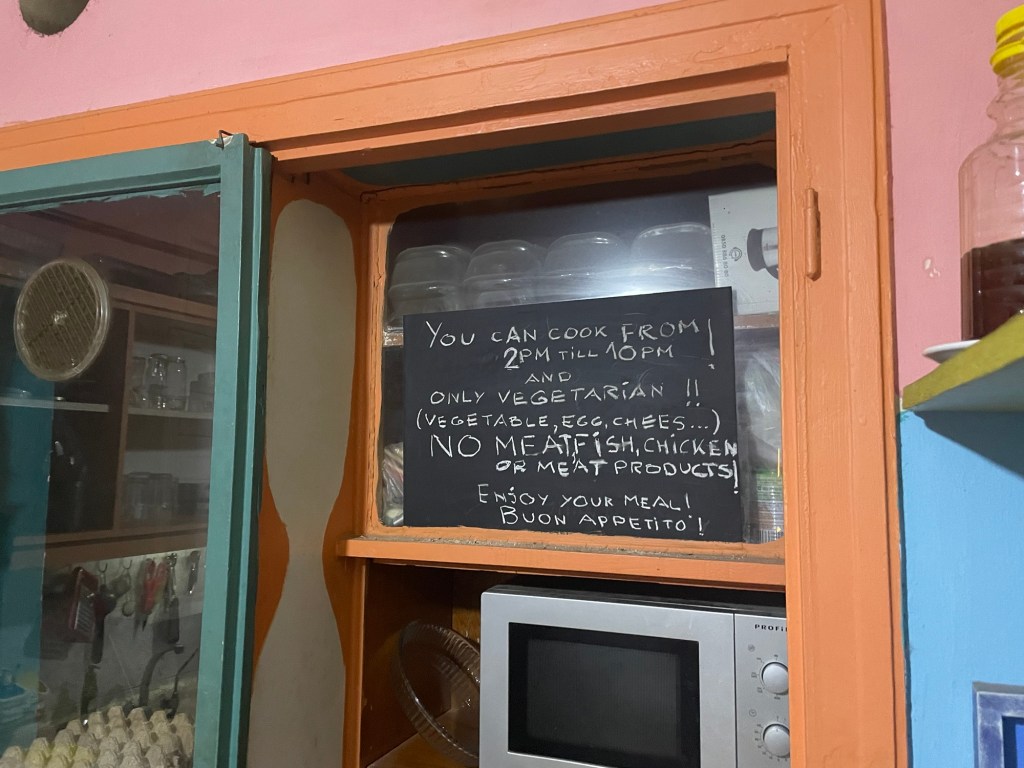 YOU CAN COOK FROM!
2PM TILL 10PM
AND
ONLY VEGETARIAN !!
(VEGETABLE, EGG, CHEES...)
NO MEAT, FISH, CHICKEN
OR MEAT PRODUCTS!
ENJOY YOUR MEAL!
BUON APPETITO'!